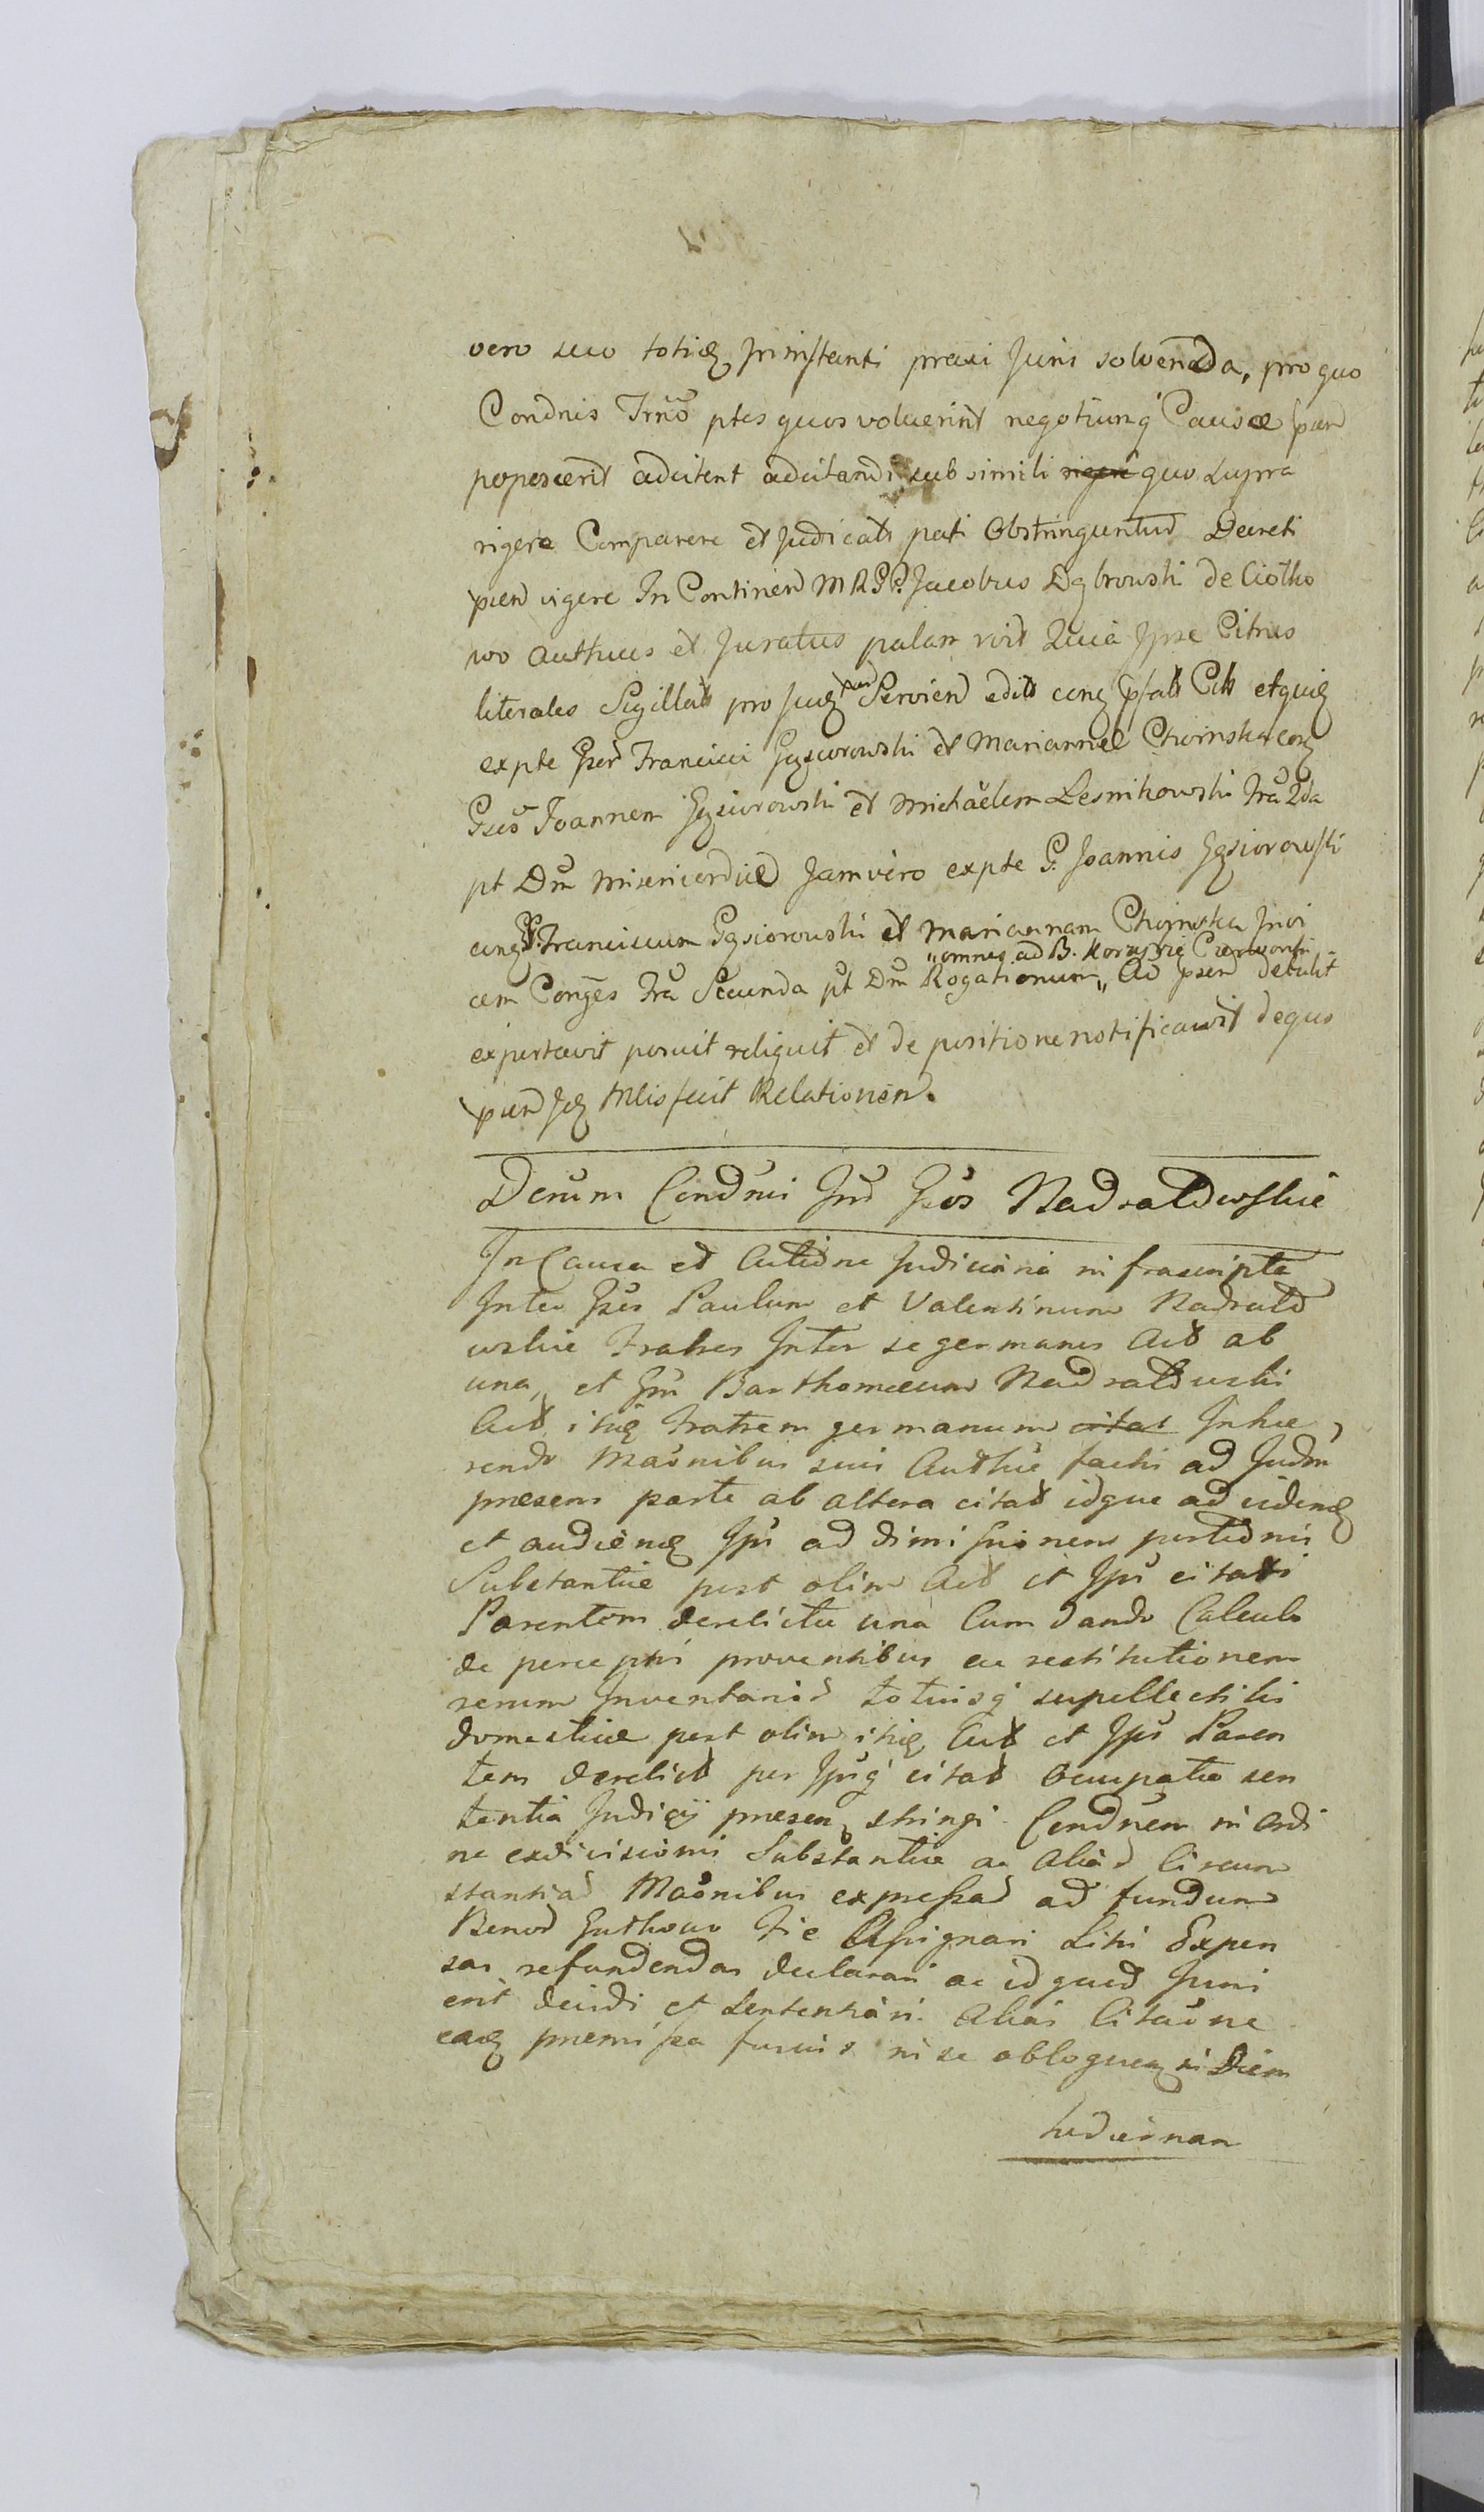 vero suo totieq prinstanti praxi Juris solvenda, pro quo
Condnis Trno ptes quos voluerint negotiumq Causae psen
poposcerit adcitent adcitandi sub simili rigore quo supra
rigore Comparere et Judicats pati Obstringuntur Decreti
psen vigore In Continen MRGP. Jacobus Dąbrowski de Ciołko
wo Authcus et Juratus palam rvit Quia Ipse Citnes
literales Sigillats pro Judq psen Servien edits conq psfats Cits etquidq
expte Gser Francisci Gąsiorowski et Mariannae Choinska conq
Gsos Joannem Gąsiorowski et Michaelem Lesnikowski Fra 2da
pt Dm Misericordiae Jamvero expte G. Joannis Gąsiorowski
conq G. Franciscum Gąsiorowski et Mariannam Choinska Invi
„omnes ad B. Korzyb­ie Czerwonki
cem Conges Fra Secunda pt Dm Rogationum „ Ad psen detulit
exportavit posuit reliquit et de positione notificavit dequo
psen Jdq Mlis fecit Relationem.
Decum Condmni Int Gsos Nadratowskie
In Causa et Actione Judiciaria infrascripta
Inter Gsos Paulum et Valentinum Nadrato
wskie Fratres Inter se germanos Act ab
una, et Gm Bartholomaeum Nadratowski
Act itidq Fratrem germanum citat Inhae
rendo Maonibus suis Authce factis ad Judm
praesens parte ab altera citat idque ad videndq
et audiendq Ips ad dimissionem portionis
Substantiae post olim Act et Ips citati
Parentem derelictae una Cum dando Calculo
de perceptis proventibus ac restitutionem
rerum Inventarior totiusq supellectilis
domesticae post olim itidq Act et Ips Paren
tem derelict per Ipsq citat occupatae sen
tentia Judicij praesen stringi. Condnem in Ordi
ne exdivisioni Substantiae ac aliar Circum
stantiar Maonibus expressar ad fundum
Bonor Guthowo Fie Assignari Litis Expen
sas refundendas declarari ac id quod Juris
erit decidi et Sententiari. Alias Citaone
eaq praemissa fusius in se obloquen in Diem
hodiernam